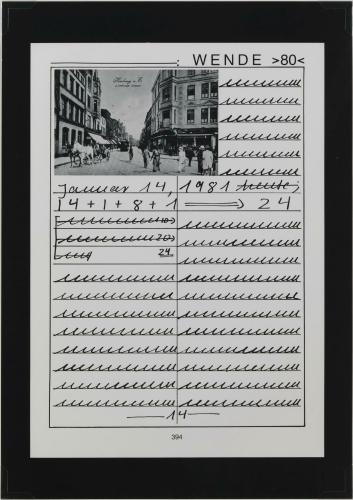 : WENDE >80<
Harburg a. E.
Januar 14, 1981 heute,
14+1+8+1 ⟹ 24
10
20
24
—14—
394